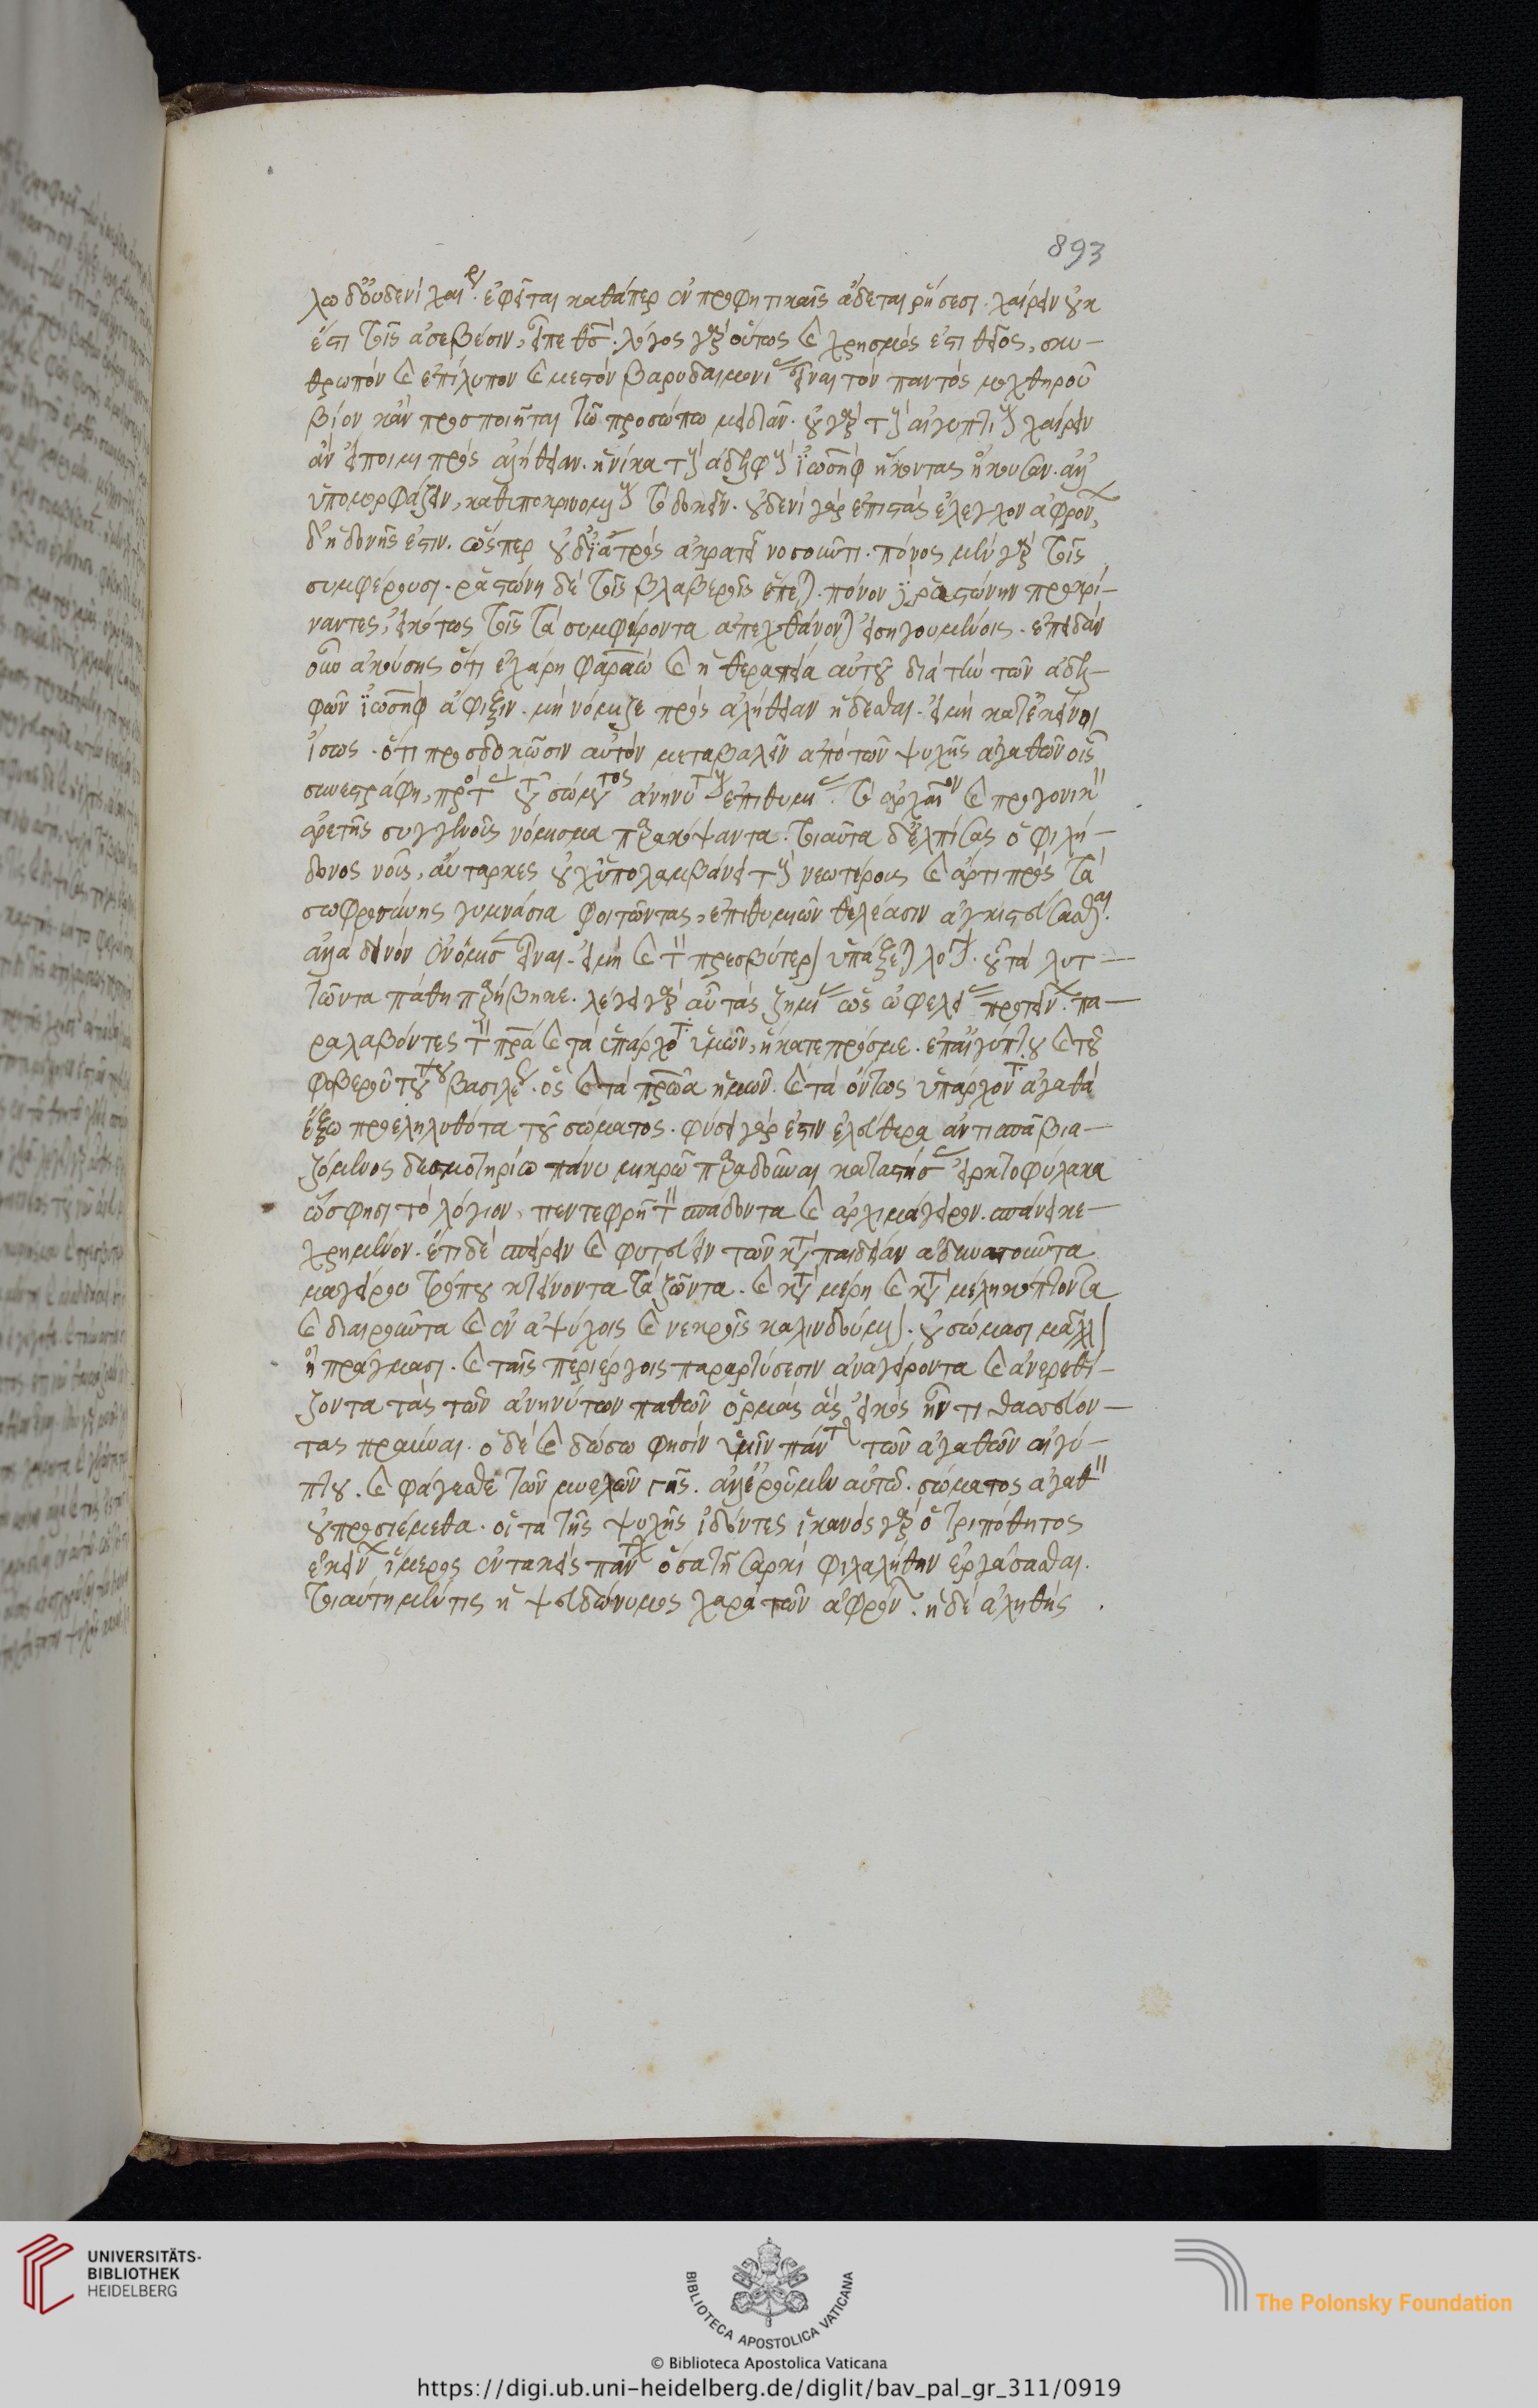 893
λω δ' οὐδενὶ χαίρειν ἐφεῖται καθάπερ ἐν προφητικαῖς ἄδεται ῥήσεσι. χαίρειν οὐκ
ἔστι τοῖς ἀσεβέσιν, εἶπε θσ. λόγος γὰρ οὕτως καὶ χρησμός ἐστι θεῖος, σκυ-
θρωπόν καὶ ἐπίλυπον καὶ μεστόν βαρυδαιμονίας εἶναι τὸν παντός μοχθηροῦ
βίον κἂν προσποιῆται τῶ προσώπω μειδιᾶν. οὐ γὰρ τοὺς αἰγυπτίους χαίρειν
ἂν εἴποιμι πρὸς ἀλήθειαν. ἡνίκα τοὺς ἀδελφοὺς ἰωσὴφ ἥκοντας ἤκουσαν. ἀλλ'
ὑπομορφάζειν, καθυποκρινομένους τὸ δοκεῖν. οὐδενὶ γὰρ ἐπιστὰς ἔλεγχον ἀφρόνων,
δι' ἡδονῆς ἐστιν. ὥσπερ οὐδ' ἰατρὸς ἀκρατεῖ νοσοῦντι. πόνος μὲν γὰρ τοῖς
συμφέρουσι. ῥαστώνη δὲ τοῖς βλαβεροῖς ἕπεται. πόνου ῥαστώνην προκρί-
ναντες, εἰκότως τοῖς τὰ συμφέροντα ἀπεχθάνονται εἰσηγουμένοις. ἐπειδὰν
οὖν ἀκούσης ὅτι ἐχάρη φαραὼ καὶ ἡ θεραπεία αὐτοῦ διὰ τὴν τῶν ἀδελ-
φῶν ἰωσὴφ ἄφιξιν. μὴ νόμιζε πρὸς ἀλήθειαν ἥδεσθαι. εἰ μὴ κατ' ἐκεῖνο
ἴσως. ὅτι προσδοκῶσιν αὐτὸν μεταβαλεῖν ἀπὸ τῶν ψυχῆς ἀγαθῶν οἷς
συνεστράφη, πρὸς τὰς τοῦ σώματος ἀνηνύτους ἐπιθυμίας. τὸ ἀρχαῖον καὶ προγονικὸν
ἀρετῆς συγγενοῦς νόμισμα παρακόψαντα. τοιαῦτα δ' ἐλπίσας ὁ φιλή-
δονος νοῦς, αὔταρκες οὐχ ὑπολαμβάνει τοὺς νεωτέρους καὶ ἄρτι πρὸς τὰ
σωφροσύνης γυμνάσια φοιτῶντας, ἐπιθυμιῶν θελέασιν ἀγκιστρεύσασθαι.
ἀλλὰ δεινὸν ἐνόμισεν εἶναι. εἰ μὴ καὶ τὸν πρεσβύτερον ὑπάξεται λόγον. οὗ τὰ λυτ-
τῶντα πάθη παρήβηκε. λέγει γὰρ αὖ τὰς ζημίας ὡς ὠφελείας προτείνων. πα-
ραλαβόντες τὸν πρα καὶ τὰ ὑπάρχοντα ὑμῶν, ἥκατε πρός με. ἐπ' αἰγύπτου καὶ τοῦ
φοβεροῦ τούτου βασιλέως. ὃς καὶ τὰ πατρῶα ἡμῶν. καὶ τὰ ὄντως ὑπάρχοντα ἀγαθὰ
ἔξω προεληλυθότα τοῦ σώματος. φύσει γάρ ἐστιν ἐλεύθερα ἀντισπᾶ βια-
ζόμενος δεσμοτηρίω πάνυ μικρῶ παραδοῦναι καταστήσας εἰρκτοφύλακα
ὥς φησι τὸ λόγιον, πεντεφρῆ τὸν σπάδοντα καὶ ἀρχιμάγειρον. σπάνει κε-
χρημένον. ἔτι δὲ σπείρειν καὶ φυτεύειν τῶν κατὰ παιδείαν ἀδυνατοῦντα
μαγείρου τρόπου κτείνοντα τὰ ζῶντα. καὶ κατὰ μέρη καὶ κατὰ μέλη κόπτοντα
καὶ διαιροῦντα καὶ ἐν ἀψύχοις καὶ νεκροῖς καλινδούμενον. οὐ σώμασι μᾶλλον
ἢ πράγμασι. καὶ ταῖς περιέργοις παραρτύσεσιν ἀναγείροντα καὶ ἀνερεθί-
ζοντα τὰς τῶν ἀνηνύτων παθῶν ὁρμὰς ἃς εἰκὸς ἦν τιθασσεύον-
τας πραΰναι. ὁ δὲ καὶ δώσω φησὶν ὑμῖν πάντων τῶν ἀγαθῶν αἰγύ-
πτου. καὶ φάγεσθε τῶν μυελῶν γῆς. ἀλλ' ἐροῦμεν αὐτῶ. σώματος ἀγαθὸν
οὐ προσιέμεθα. οἱ τὰ τῆς ψυχῆς ἰδόντες ἱκανὸς γὰρ ὁ τριπόθητος
ἐκείνων ἵμερος ἐντακεὶς πάντων ὅσα τῆ σαρκὶ φίλα λήθην ἐργάσασθαι.
τοιαύτη μέν τις ἡ ψευδώνυμος χαρὰ τῶν ἀφρόνων. ἡ δὲ ἀληθὴς
UNIVERSITÄTS-
BIBLIOTHEK
HEIDELBERG
BIBLIOTECA APOSTOLICA VATICANA
The Polonsky Foundation
© Biblioteca Apostolica Vaticana
https://digi.ub.uni-heidelberg.de/diglit/bav_pal_gr_311/0919